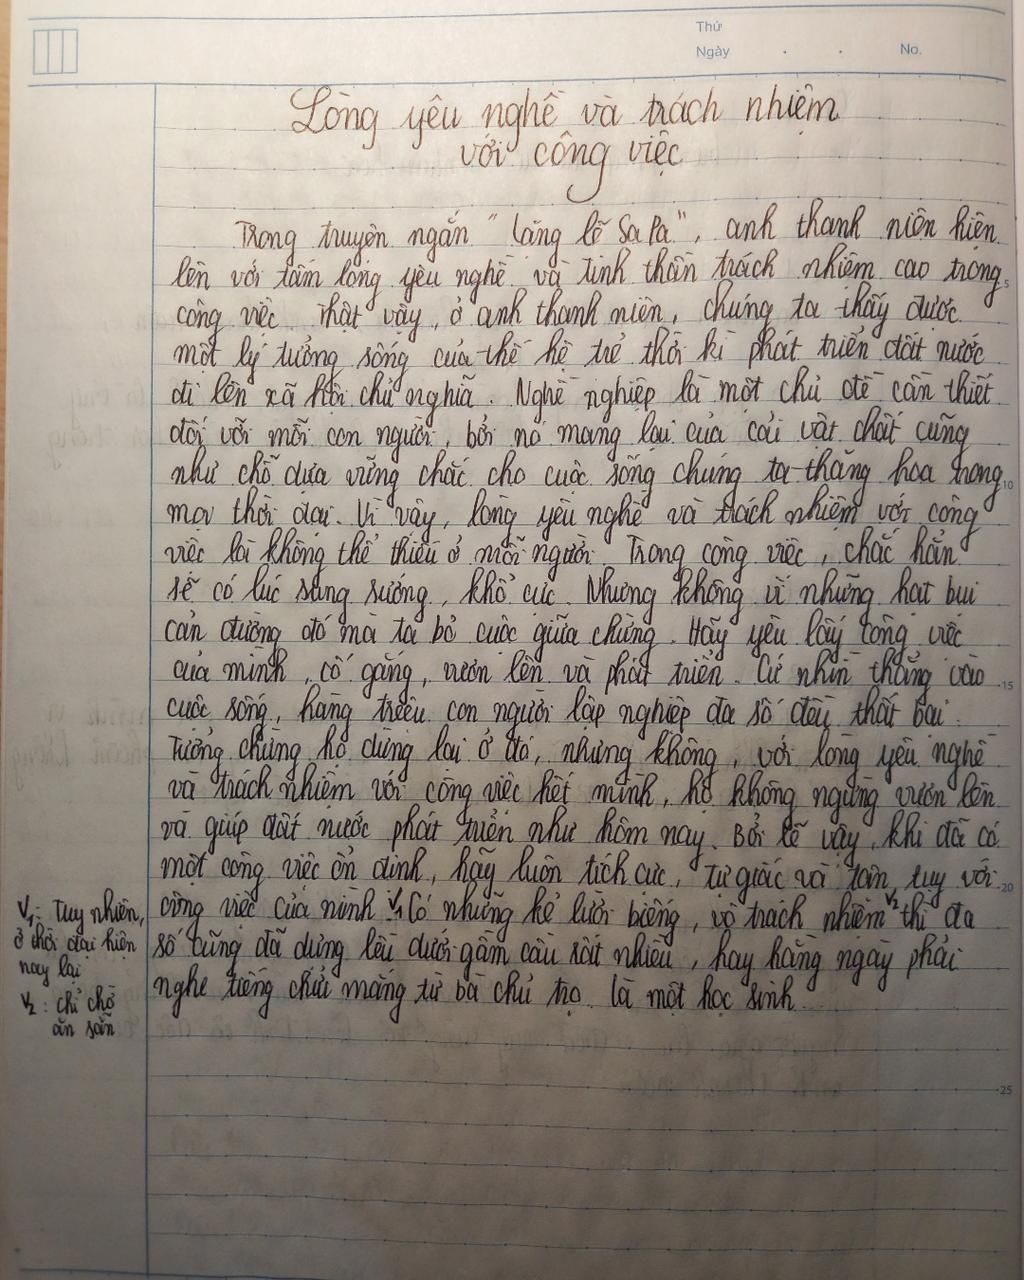 Thứ
Ngày . . No.
Lòng yêu nghề và trách nhiệm
với công việc
Trong truyện ngắn "Lặng lẽ Sa Pa", anh thanh niên hiện
lên với tấm lòng yêu nghề và tinh thần trách nhiệm cao trong
5
công việc. Thật vậy, ở anh thanh niên, chúng ta thấy được
một lý tưởng sống của thế hệ trẻ thời kì phát triển đất nước
đi lên xã hội chủ nghĩa. Nghề nghiệp là một chủ đề cần thiết
đối với mỗi con người, bởi nó mang lại của cải vật chất cũng
như chỗ dựa vững chắc cho cuộc sống chúng ta thăng hoa trong
10
mọi thời đại. Vì vậy, lòng yêu nghề và trách nhiệm với công
việc là không thể thiếu ở mỗi người. Trong công việc, chắc hẳn
sẽ có lúc sung sướng, khổ cực. Nhưng không vì những hạt bụi
cản đường đó mà ta bỏ cuộc giữa chừng. Hãy yêu lấy công việc
của mình, cố gắng, vươn lên và phát triển. Cứ nhìn thẳng vào
15
cuộc sống, hàng triệu con người lập nghiệp đa số đều thất bại.
Tưởng chừng họ dừng lại ở đó, nhưng không, với lòng yêu nghề
và trách nhiệm với công việc hết mình, họ không ngừng vươn lên
và giúp đất nước phát triển như hôm nay. Bởi lẽ vậy, khi đã có
một công việc ổn định, hãy luôn tích cực, tự giác và tận tụy với
20
công việc của mình. V1 Có những kẻ lười biếng, vô trách nhiệm V2 thì đa
số cũng đã dựng lều dưới gầm cầu rất nhiều, hay hằng ngày phải
nghe tiếng chửi mắng từ bà chủ trọ. Là một học sinh
V1: Tuy nhiên,
ở thời đại hiện
nay lại
V2: chỉ chờ
ăn sẵn
25